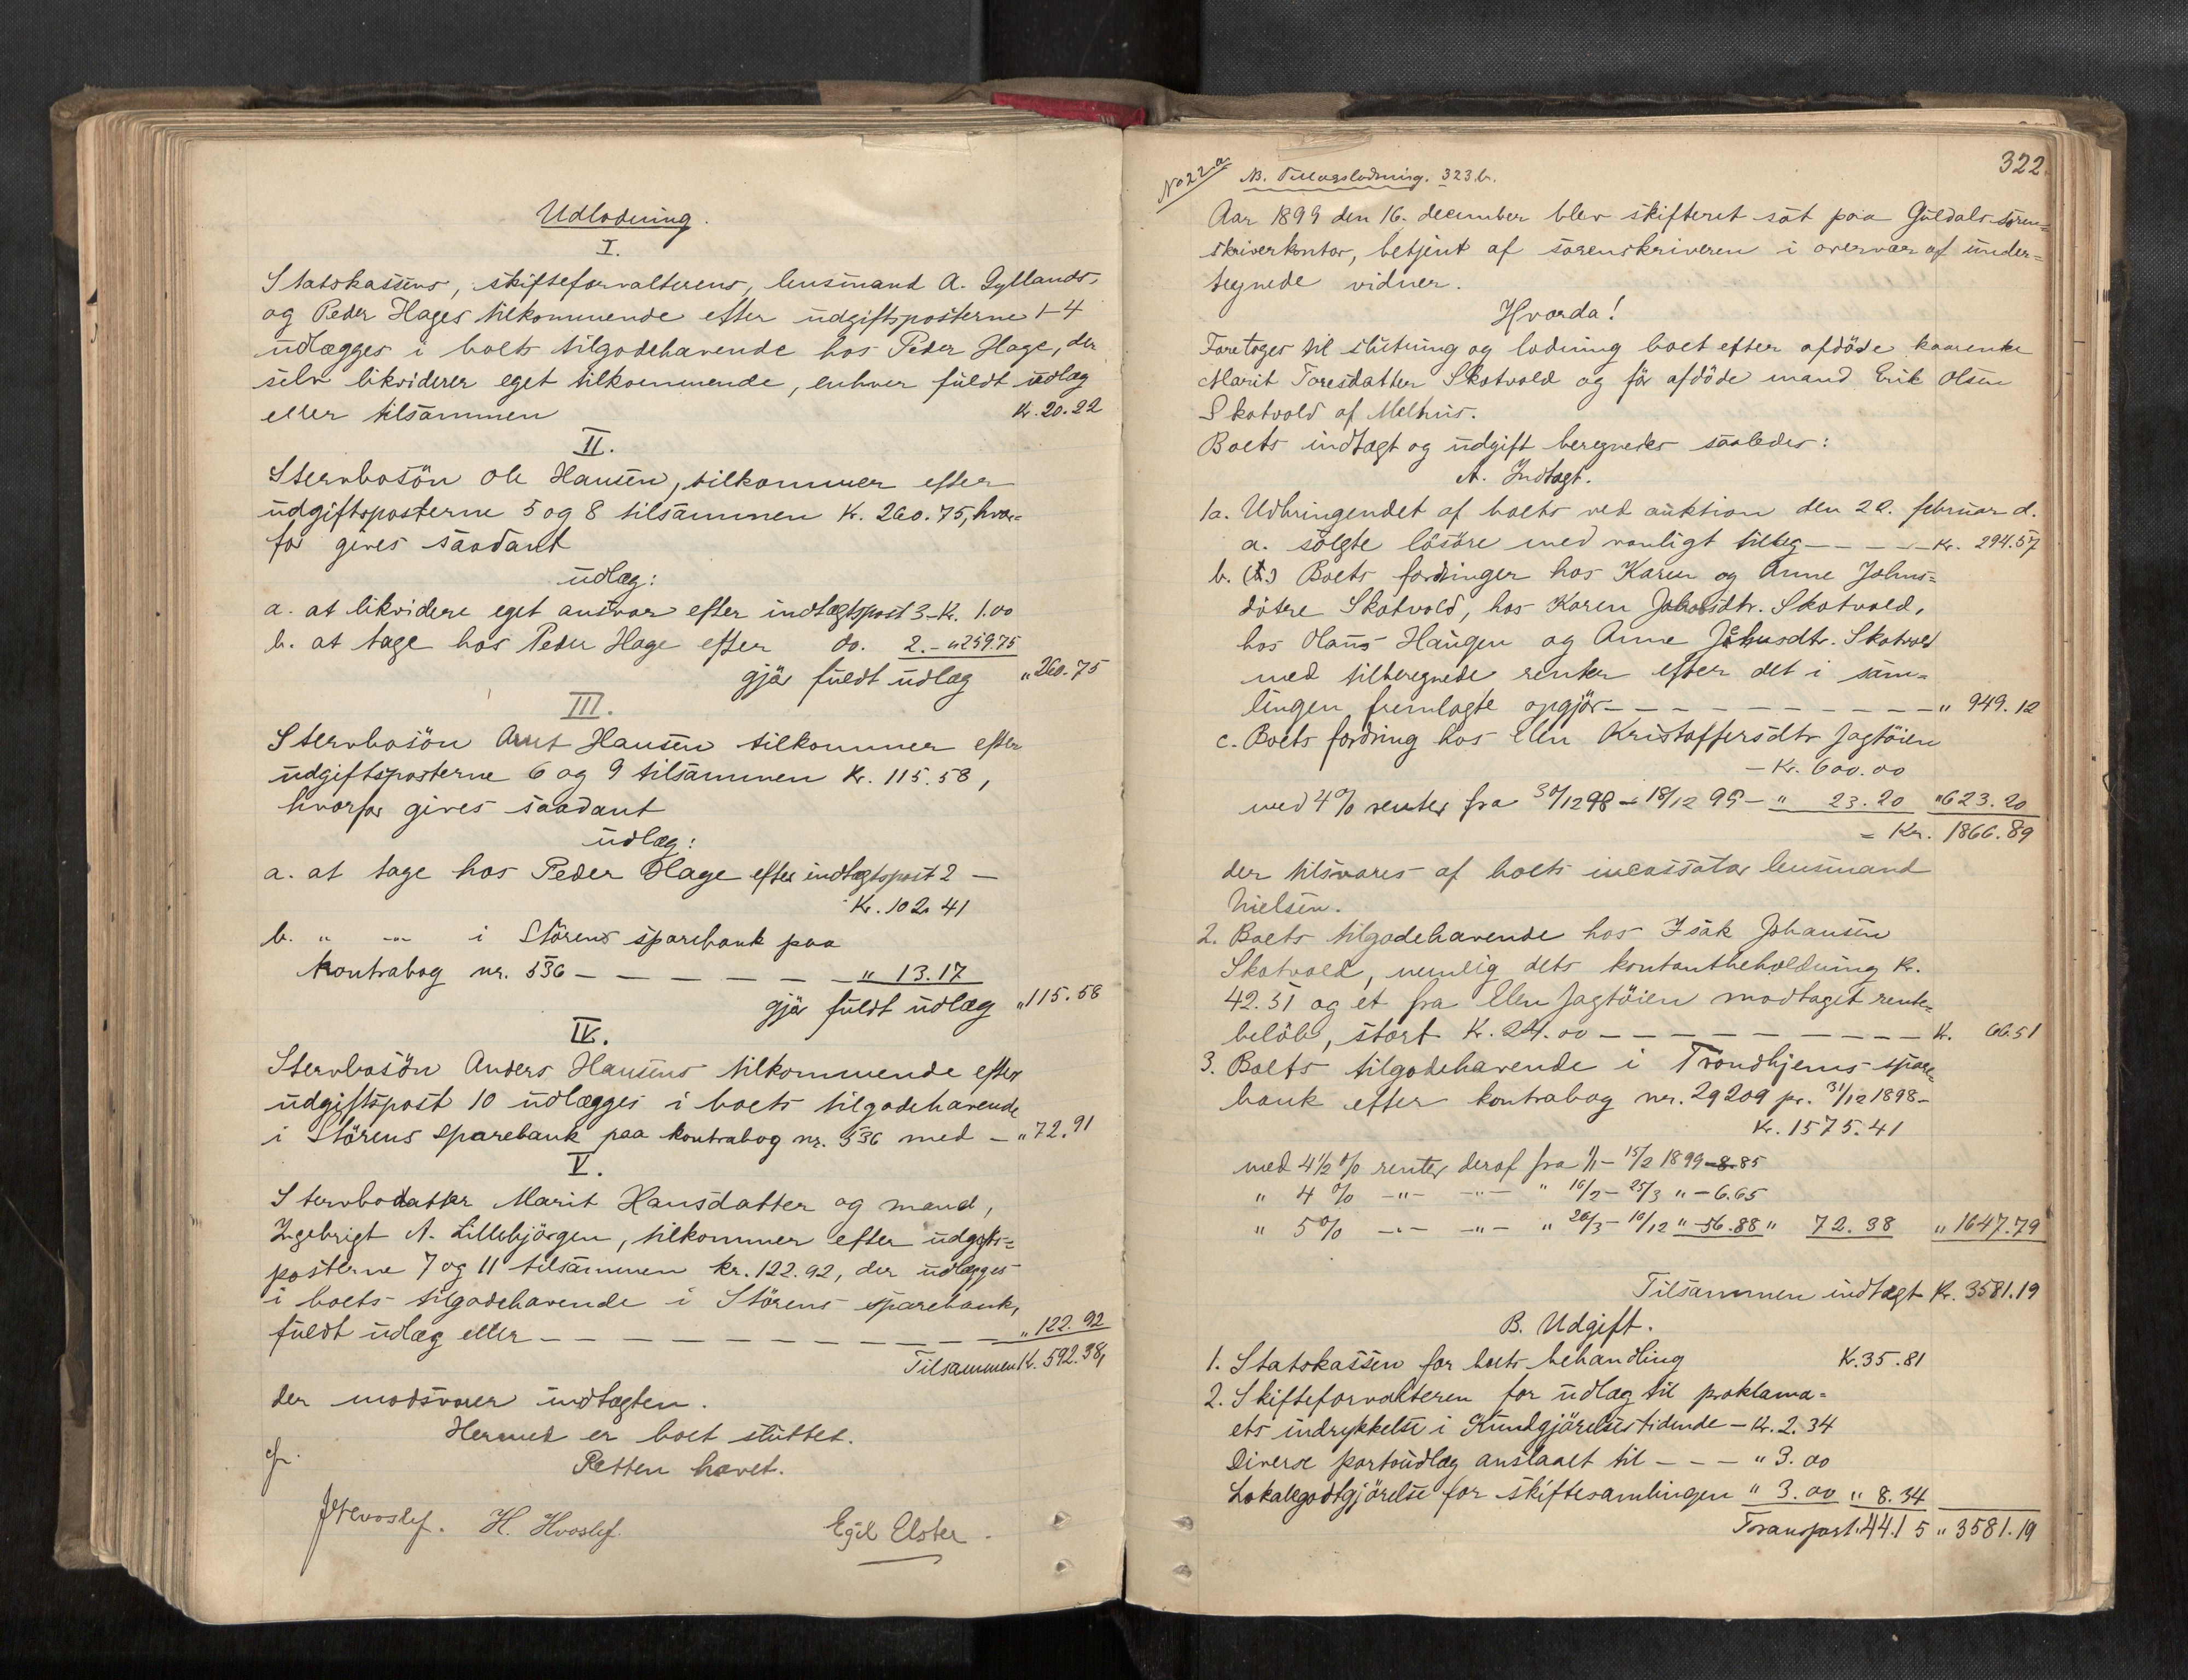 Udlodning.
I.
Statskassens, skifteforvalterens, lensmand A. Gyllands,
og Peder Hages tilkommende efter udgiftsposterne 1-4
udlægges i boets tilgodehavende hos Peder Hage, der
selv likviderer eget tilkommende, enhver fuldt udlæg
eller tilsammen Kr. 20.22
II.
Stervbosön Ole Hansen, tilkommer efter
udgiftsposterne 5 og 8 tilsammen Kr. 260.75, hvor=
for gives saadant
udlæg:
a. at likvidere eget ansvar efter indtægtspost 3 - Kr. 1.00
b. at tage hos Peder Hage efter do. 2. - " 259.75
gjör fuldt udlæg " 260.75
III.
Stervbosön Arnt Hansen tilkommer efter
udgiftsposterne 6 og 9 tilsammen Kr. 115.58,
hvorfor gives saadant
udlæg:
a. at tage hos Peder Hage efter indtægtspost 2 —
Kr. 102.41
b. " -"- i Störens sparebank paa
kontrabog nr. 536 — — — — — — " 13.17
gjör fuldt udlæg " 115.58
IV.
Stervbosön Anders Hansens tilkommende efter
udgiftspost 10 udlægges i boets tilgodehavende
i Störens sparebank paa kontrabog nr. 536 med — " 72.91
V.
Stervbodatter Marit Hansdatter og mand,
Ingebrigt A. Lillebjörgen, tilkommer efter udgifts=
posterne 7 og 11 tilsammen kr. 122.92, der udlægges
i boets tilgodehavende i Störens sparebank,
fuldt udlæg eller — — — — — — — — — " 122.92
Tilsammen Kr. 592.38,
der modsvarer indtægten.
Hermed er boet sluttet.
Retten hævet.
cfr.
JHvoslef. H. Hvoslef. Egil Elster.
322.
No 22 a
NB. Tillægslodning. 323 b.
Aar 1899 den 16. december blev skifteret sat paa Guldals soren=
skriverkontor, betjent af sorenskriveren i overvær af under=
tegnede vidner.
Hvorda!
Foretoges til slutning og lodning boet efter afdöde kaarenke
Marit Toresdatter Skotvold og för afdöde mand Erik Olsen
Skotvold af Melhus.
Boets indtægt og udgift beregnedes saaledes:
A. Indtægt.
1a. Udbringendet af boets ved auktion den 22. februar d.
a. solgte lösöre med vanligt tillæg — — — — Kr. 294.57
b. (t.) Boets fordringer hos Karen og Anne Johns=
døtre Skotvold, hos Karen Johnsdtr. Skotvold,
hos Hans Haugen og Anne Johnsdtr. Skotvold
med tilberegnede renter efter det i sam=
lingen fremlagte opgjör — — — — — — — — — " 949.12
c. Boets fordring hos Elen Kristoffersdtr Jagtöien
— Kr. 600.00
med 4% renter fra 30/12 98 - 18/12 99 — " 23.20 " 623.20
= Kr. 1866.89
der tilsvares af boets incassator lensmand
Nielsen.
2. Boets tilgodehavende hos Isak Johansen
Skotvold, nemlig dets kontantbeholdning Kr.
42.51 og et fra Elen Jagtöien modtaget rente=
belöb, stort Kr. 24.00 — — — — — — — — — Kr. 66.51
3. Boets tilgodehavende i Trondhjems spare=
bank efter kontrabog nr. 29209 pr. 31/12 1898 —
Kr. 1575.41
med 4½ % renter deraf fra 1/1 - 15/2 1899 - 8.85
" 4 % -"- -"- " 16/2 - 25/3 " - 6.65
" 5 % -"- -"- " 26/3 - 16/12 " - 56.88 " 72.38 " 1647.79
Tilsammen indtægt Kr. 3581.19
B. Udgift.
1. Statskassen for boets behandling Kr. 35.81
2. Skifteforvalteren for udlæg til proklama=
ets indrykkelse i Kundgjörelsestidende — Kr. 2.34
Diverse portoudlæg anslaaet til — — — " 3.00
Lokalegodtgjörelse for skiftesamlingen " 3.00 " 8.34
Transport " 44.15 " 3581.19